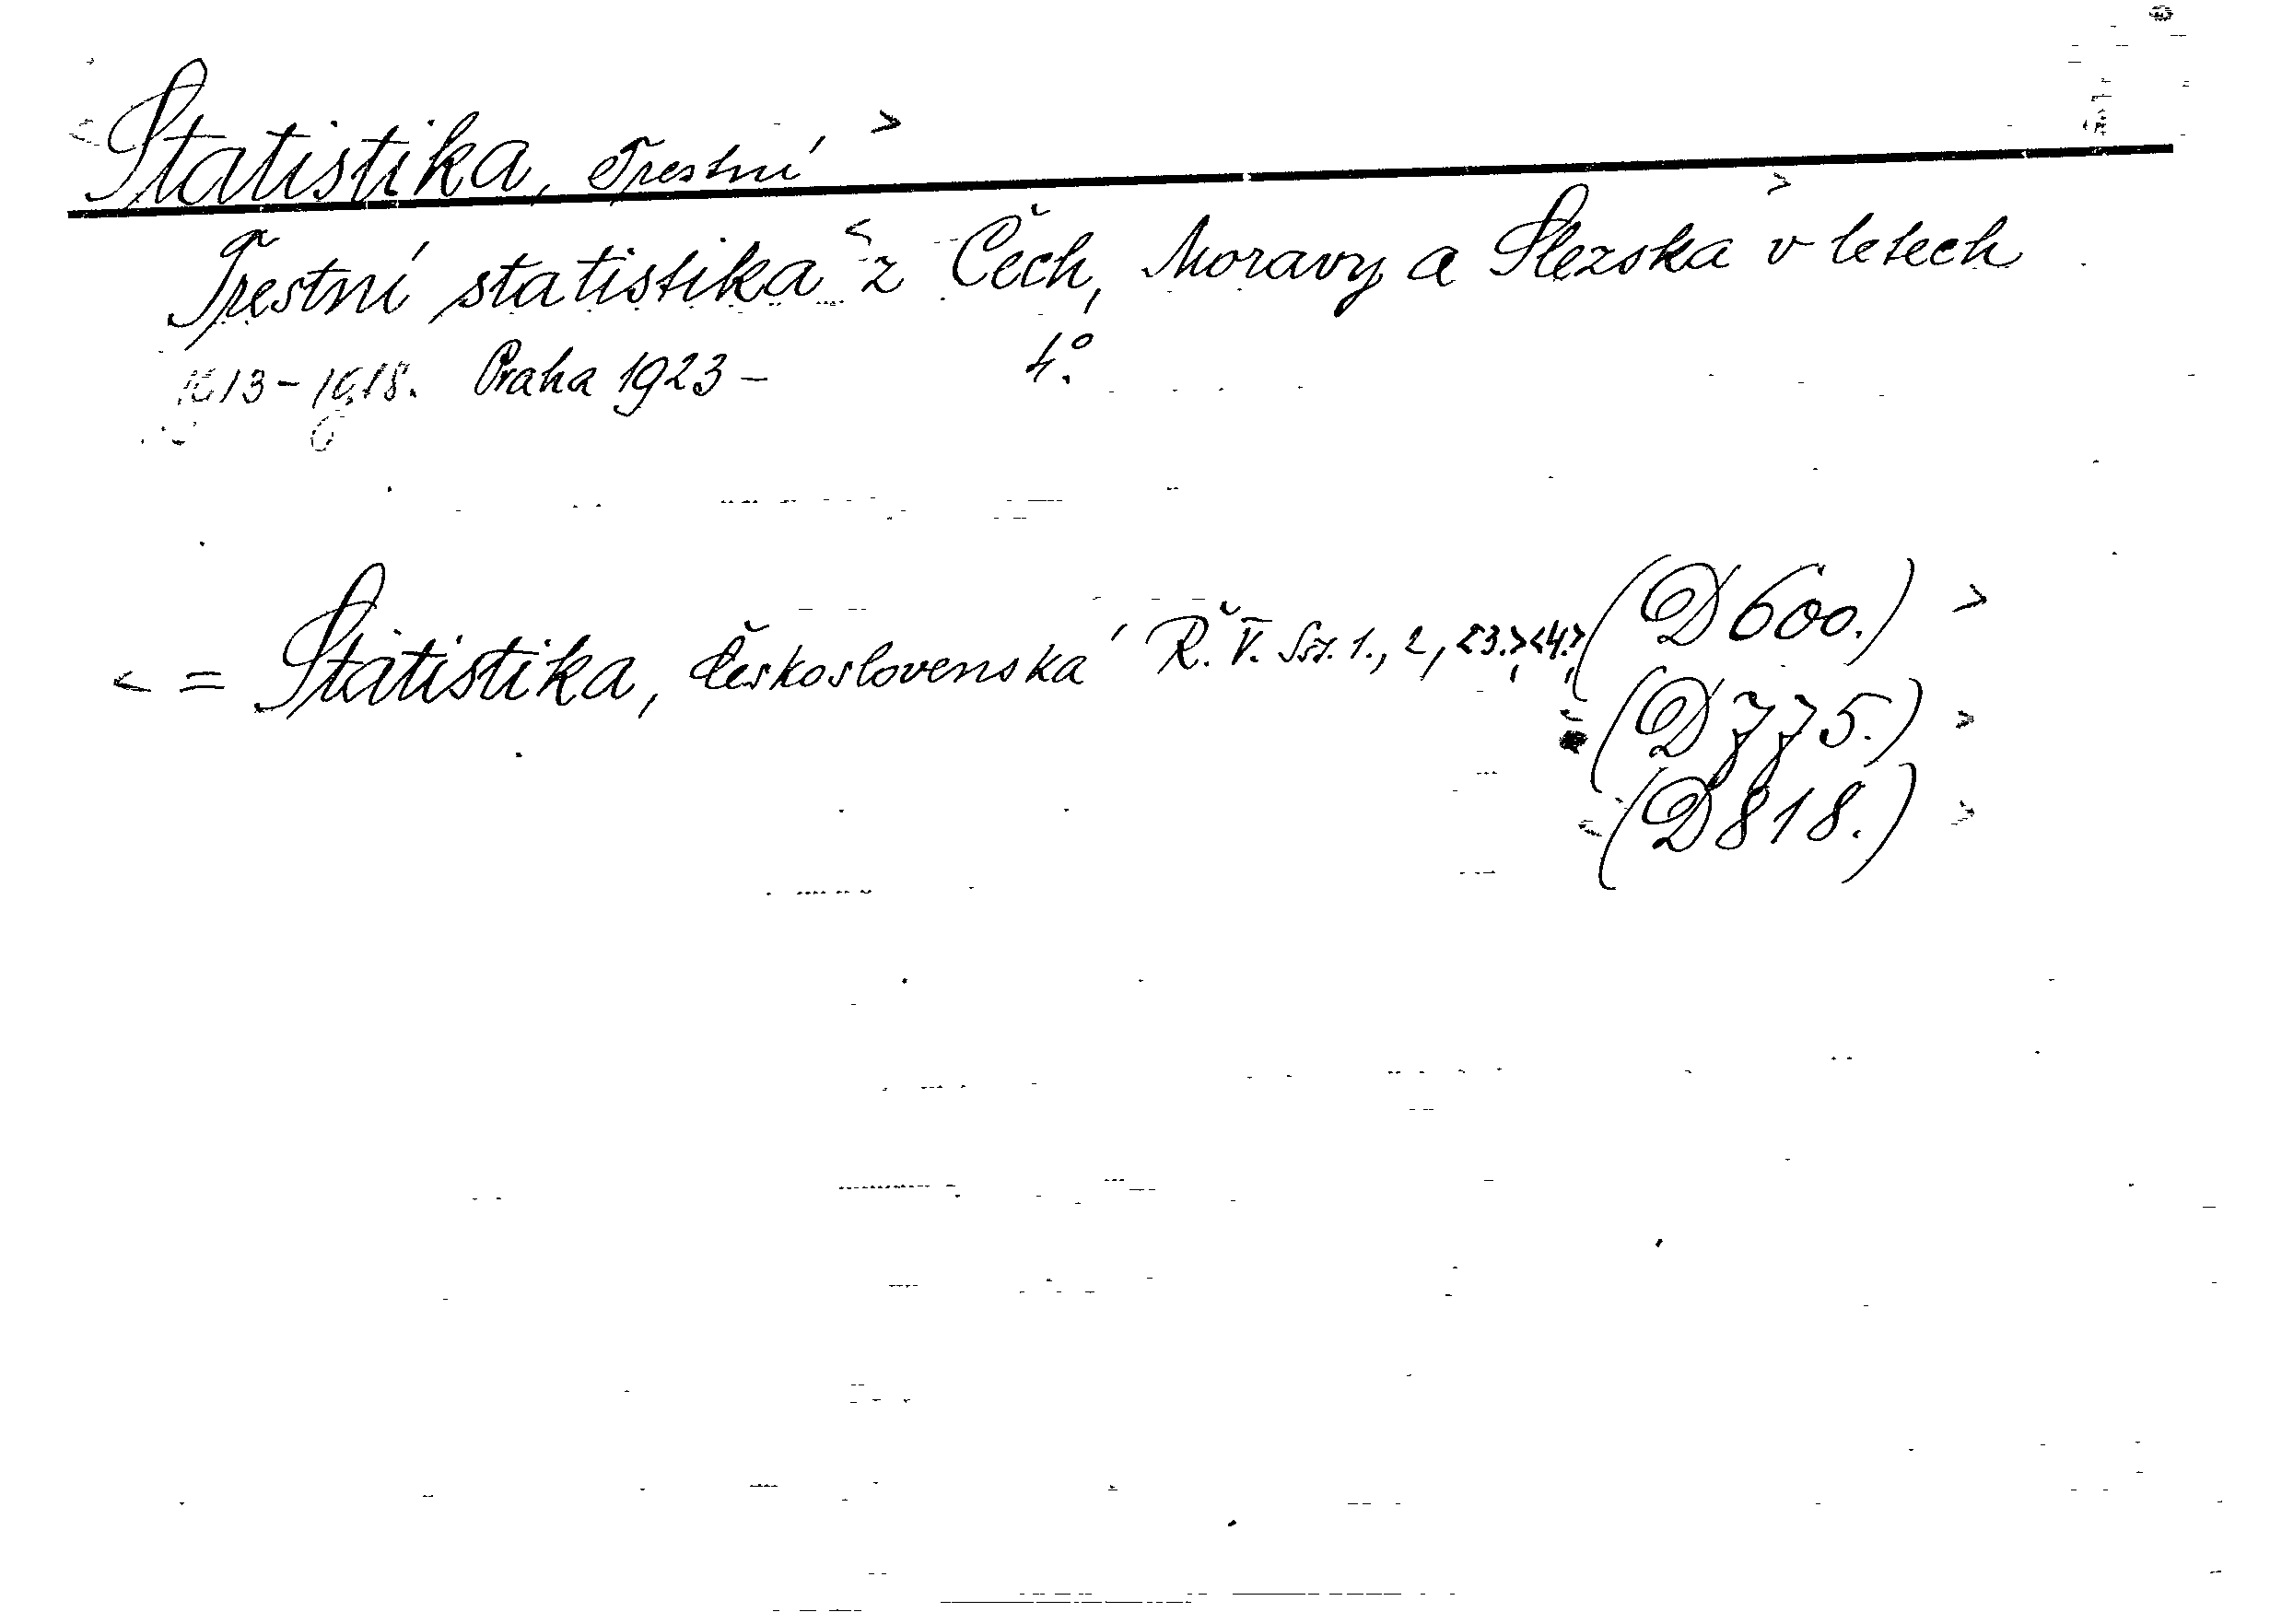 <Statistika, Trestní>
Trestní statistika < z Čech, Moravy a Slezska > v letech
1913-1918. Praha 1923- 4°.
< = Statistika, Československá Ř. V. Seš. 1., 2, <3.>, <4.>, (D 600.) >
< (D 775.) >
< (D 818.) >